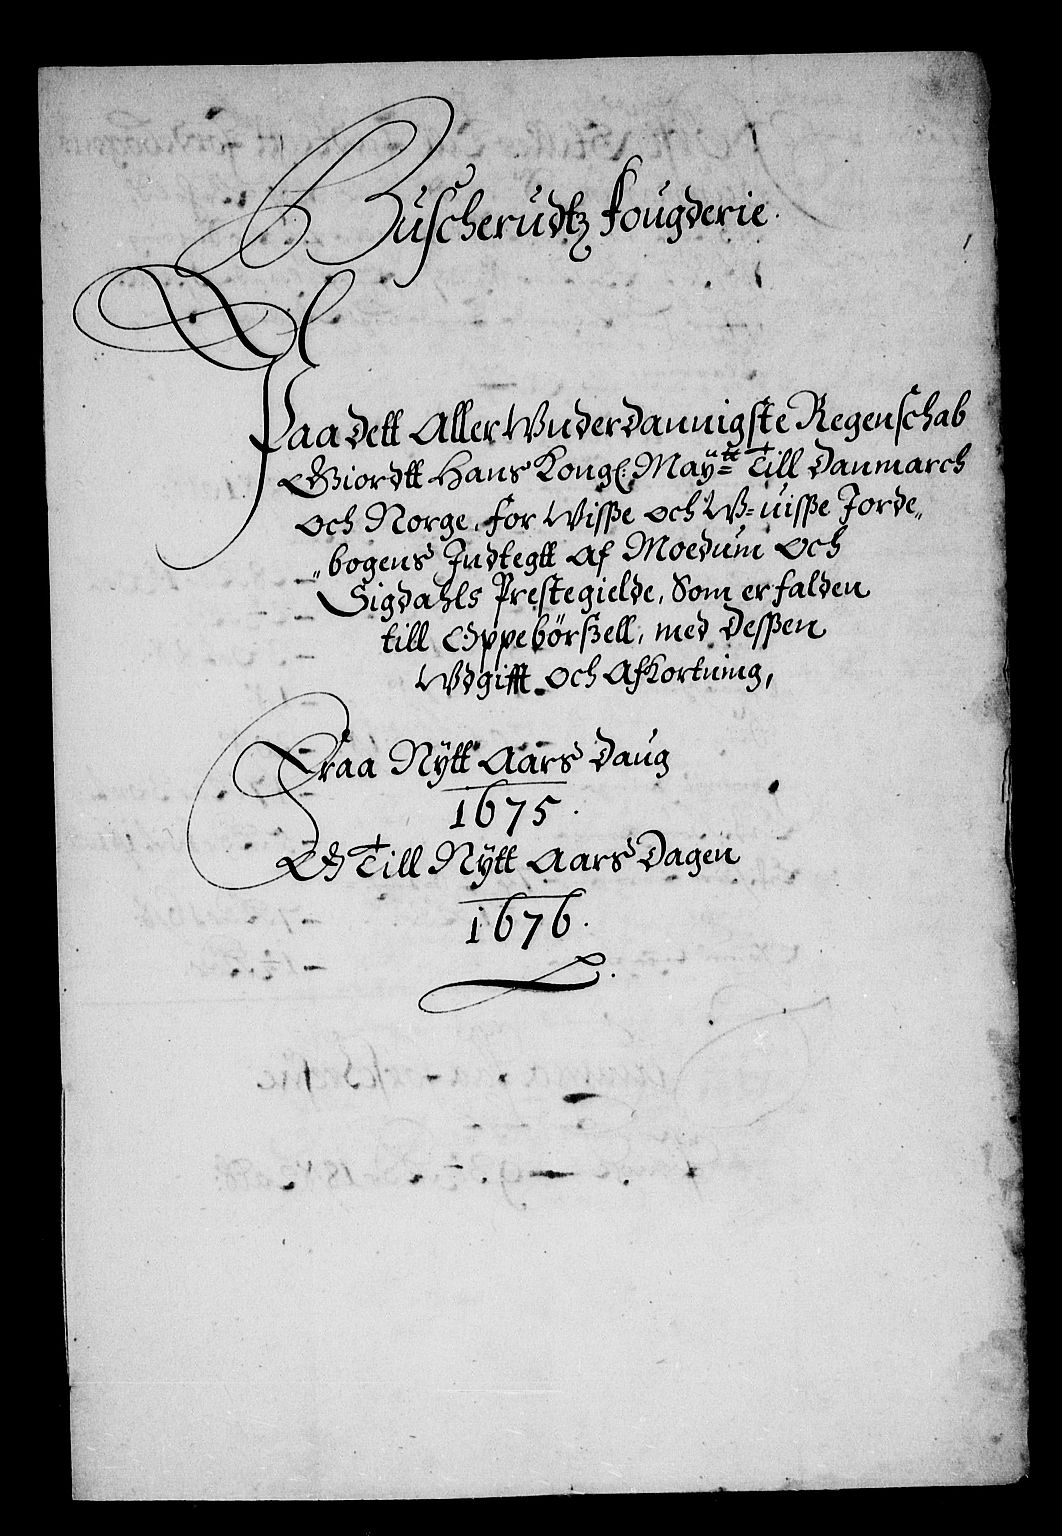 Buscherudtz fougderie.
Paa dett Aller Wnderdannigste Regenschab
Giordtt Hans Kong: Maÿtt Till Danmarch
och Norge, for Wisße och W=uisße Jorde„
„bogens Indtegtt af Moedum och
Sigdahls Prestegielde, Som er falden
till Oppebörßell, med Desßen
Wdgifft och Afkortning,
Fraa Nÿtt Aars Daug
1675.
Og Till Nÿtt Aars Dagen
1676.